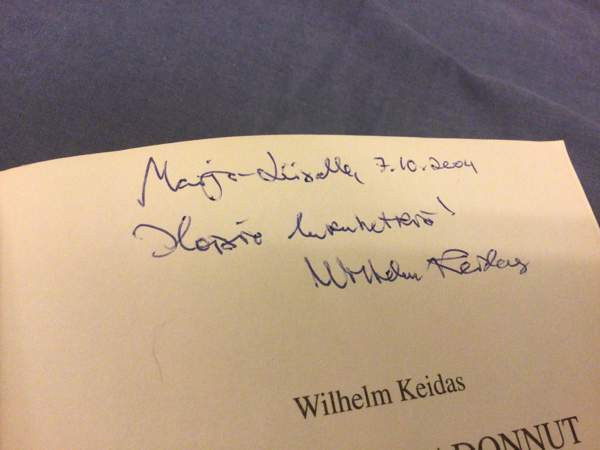 Marja-Liisalle, 7.10.2004
Iloisia lukuhetkiä!
Wilhelm Keidas
Wilhelm Keidas